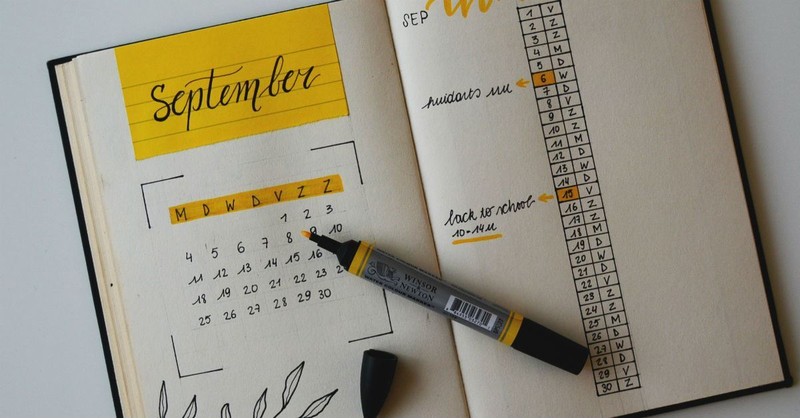 September
M D W D V Z Z
1 2 3
4 5 6 7 8 9 10
11 12 13 14 15 16
18 19 20 21 22 23
25 26 27 28 29 30
SEP
1 V
2 Z
3 Z
4 M
5 D
6 W
huidarts 11u
7 D
8 V
9 Z
10 Z
11 M
12 D
13 W
14 D
15 V
back to school
10-14u
16 Z
17 Z
18 M
19 D
20 W
21 D
22 V
23 Z
24 Z
25 M
26 D
27 W
28 D
29 V
30 Z
WINSOR
NEWTON